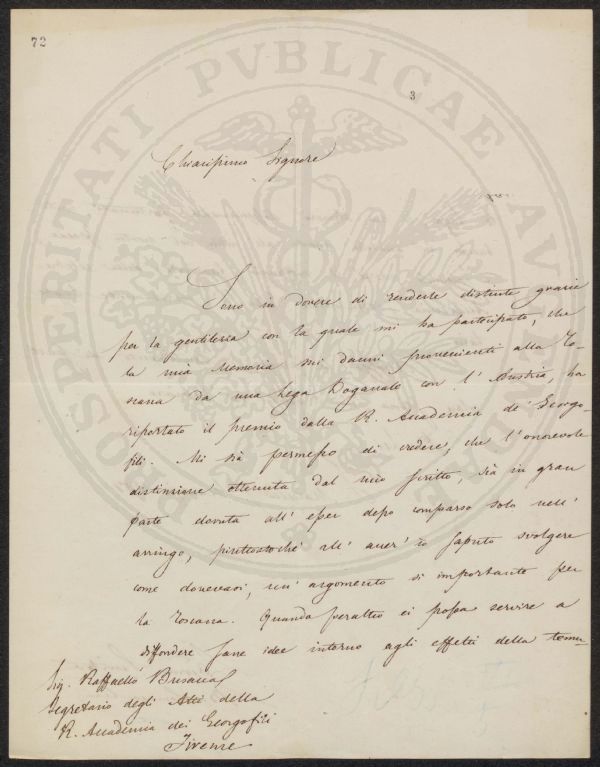 72
3
PROSPERITATI PVBLICAE AVGENDAE
Chiarissimo Signore
Sono in dovere di renderle distinte grazie
per la gentilezza con la quale mi ha partecipato, che
la mia Memoria sui danni provenienti alla To-
scana da una Lega Doganale con l' Austria, ha
riportato il premio dalla R. Accademia de' Georgo-
fili. Mi sia permesso di credere, che l'onorevole
distinzione ottenuta dal mio scritto, sia in gran
parte dovuta all' esser desso comparso solo nell'
arringo, piuttostoché all' aver io saputo svolgere
come dovevasi, un' argomento sì importante per
la Toscana. Quando peraltro ei possa servire a
diffondere sane idee intorno agli effetti della temu-
Sig. Raffaello Busacca
Segretario degli Atti della
R. Accademia dei Georgofili
Firenze